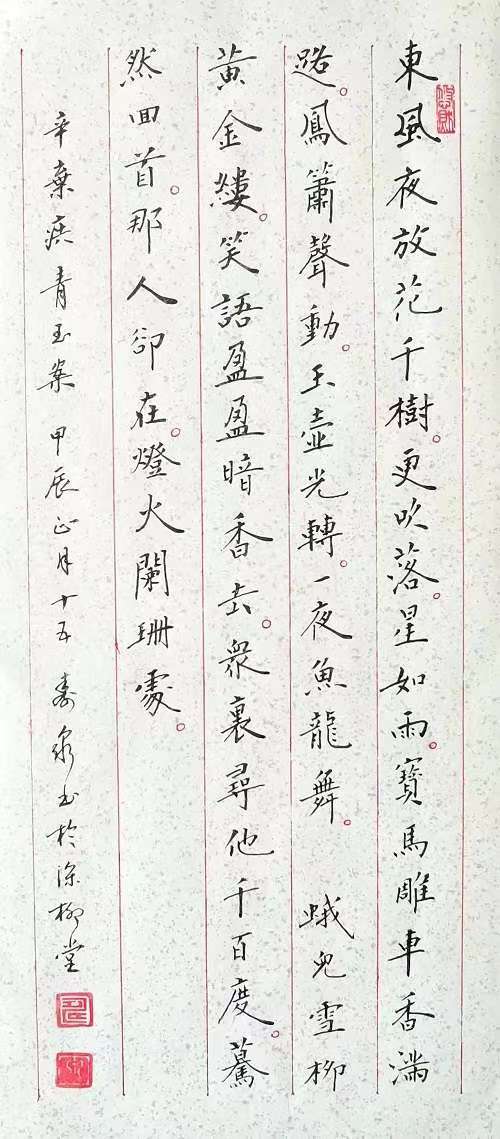 東風夜放花千樹。更吹落。星如雨。寶馬雕車香滿
路。鳳簫聲動。玉壺光轉。一夜魚龍舞。 蛾兒雪柳
黃金縷。笑語盈盈暗香去。眾裏尋他千百度。驀
然回首。那人卻在。燈火闌珊處。
辛棄疾青玉案 甲辰正月十五 壽泉书於深柳堂